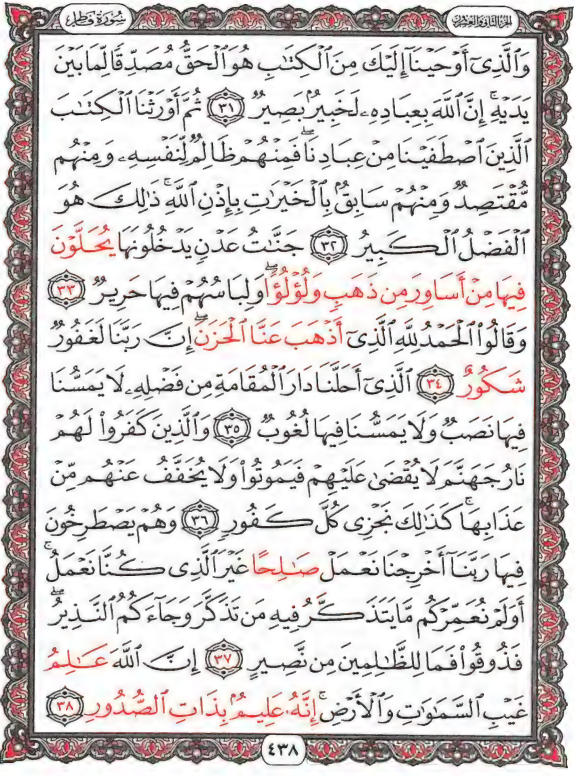 سُورَةُ فَاطِرٍ
الجُزْءُ الثَّانِي وَالعِشْرُونَ
وَٱلَّذِىٓ أَوْحَيْنَآ إِلَيْكَ مِنَ ٱلْكِتَٰبِ هُوَ ٱلْحَقُّ مُصَدِّقًا لِّمَا بَيْنَ
يَدَيْهِ ۗ إِنَّ ٱللَّهَ بِعِبَادِهِۦ لَخَبِيرٌۢ بَصِيرٌ ٣١ ثُمَّ أَوْرَثْنَا ٱلْكِتَٰبَ
ٱلَّذِينَ ٱصْطَفَيْنَا مِنْ عِبَادِنَا ۖ فَمِنْهُمْ ظَالِمٌ لِّنَفْسِهِۦ وَمِنْهُم
مُّقْتَصِدٌ وَمِنْهُمْ سَابِقٌۢ بِٱلْخَيْرَٰتِ بِإِذْنِ ٱللَّهِ ۚ ذَٰلِكَ هُوَ
ٱلْفَضْلُ ٱلْكَبِيرُ ٣٢ جَنَّٰتُ عَدْنٍ يَدْخُلُونَهَا يُحَلَّوْنَ
فِيهَا مِنْ أَسَاوِرَ مِن ذَهَبٍ وَلُؤْلُؤًا ۖ وَلِبَاسُهُمْ فِيهَا حَرِيرٌ ٣٣
وَقَالُوا۟ ٱلْحَمْدُ لِلَّهِ ٱلَّذِىٓ أَذْهَبَ عَنَّا ٱلْحَزَنَ ۖ إِنَّ رَبَّنَا لَغَفُورٌ
شَكُورٌ ٣٤ ٱلَّذِىٓ أَحَلَّنَا دَارَ ٱلْمُقَامَةِ مِن فَضْلِهِۦ لَا يَمَسُّنَا
فِيهَا نَصَبٌ وَلَا يَمَسُّنَا فِيهَا لُغُوبٌ ٣٥ وَٱلَّذِينَ كَفَرُوا۟ لَهُمْ
نَارُ جَهَنَّمَ لَا يُقْضَىٰ عَلَيْهِمْ فَيَمُوتُوا۟ وَلَا يُخَفَّفُ عَنْهُم مِّنْ
عَذَابِهَا ۚ كَذَٰلِكَ نَجْزِى كُلَّ كَفُورٍ ٣٦ وَهُمْ يَصْطَرِخُونَ
فِيهَا رَبَّنَآ أَخْرِجْنَا نَعْمَلْ صَٰلِحًا غَيْرَ ٱلَّذِى كُنَّا نَعْمَلُ ۚ
أَوَلَمْ نُعَمِّرْكُم مَّا يَتَذَكَّرُ فِيهِ مَن تَذَكَّرَ وَجَآءَكُمُ ٱلنَّذِيرُ ۖ
فَذُوقُوا۟ فَمَا لِلظَّٰلِمِينَ مِن نَّصِيرٍ ٣٧ إِنَّ ٱللَّهَ عَٰلِمُ
غَيْبِ ٱلسَّمَٰوَٰتِ وَٱلْأَرْضِ ۚ إِنَّهُۥ عَلِيمٌۢ بِذَاتِ ٱلصُّدُورِ ٣٨
٤٣٨